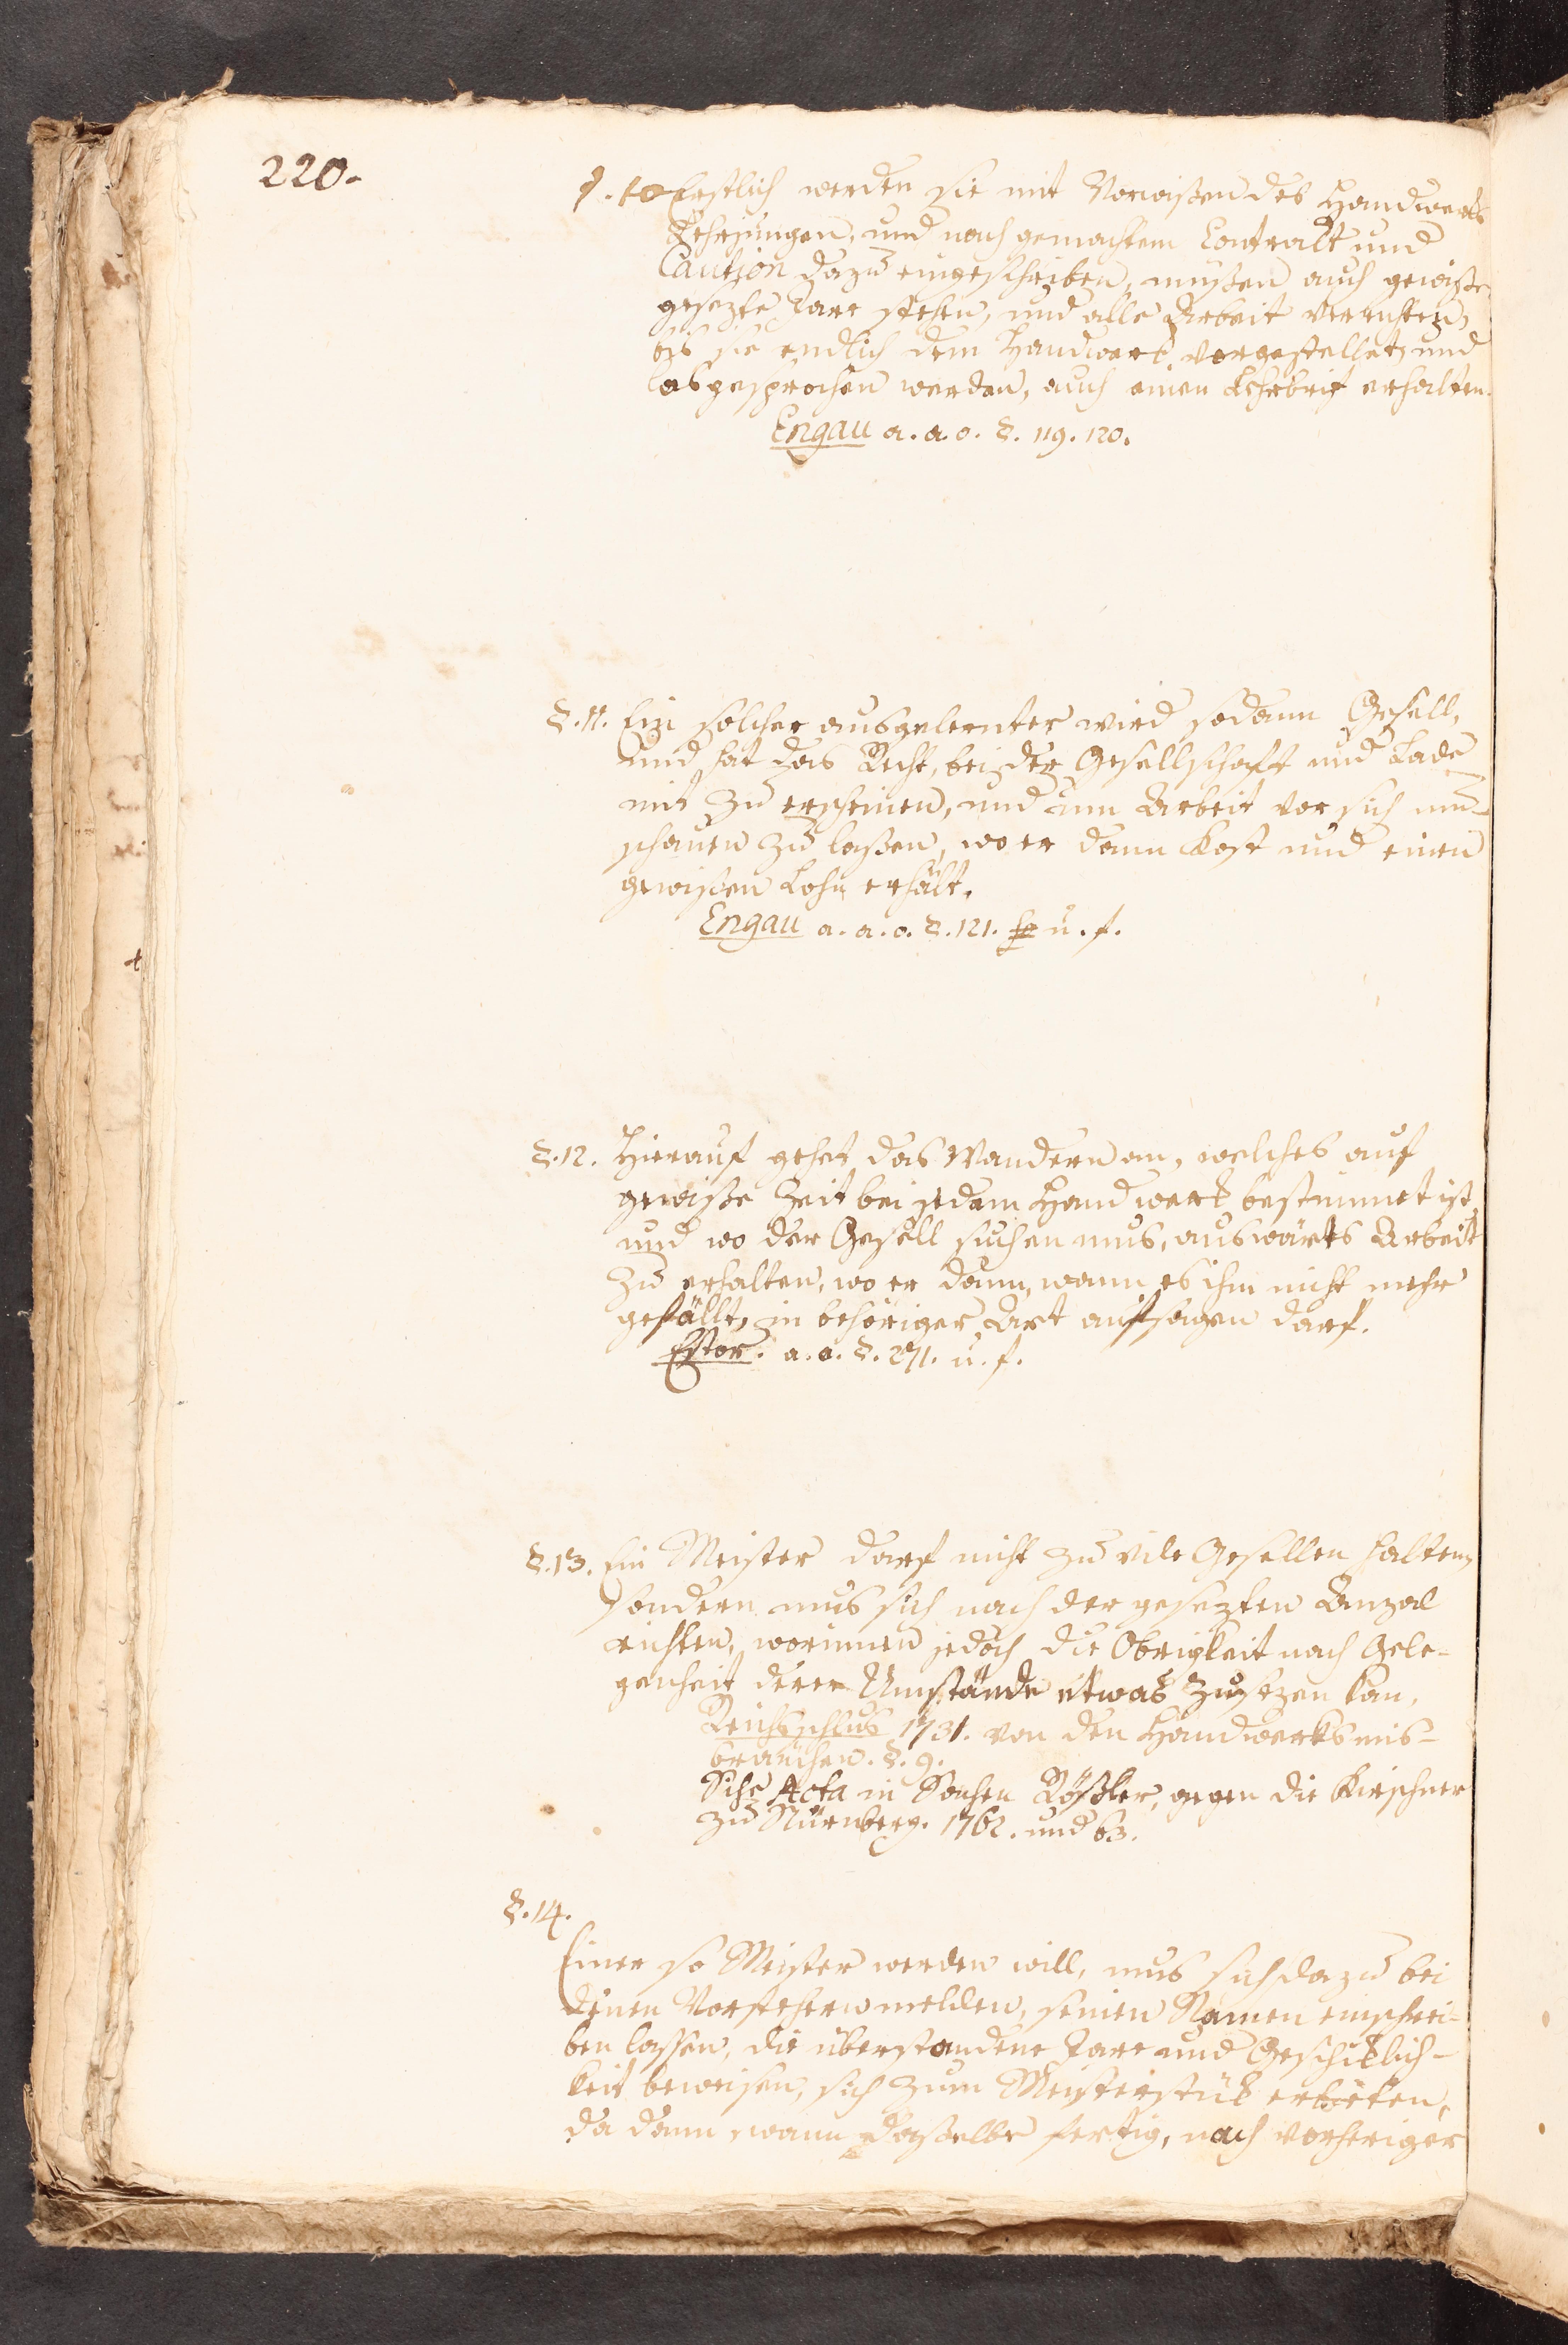 220.
§. 10 Erstlich werden sie mit Vorwißen des Handwerks
Lehrjungen, und nach gemachtem Contrakt und
Caution dazu eingeschriben, müßen auch gewiße
gesezte Jare stehen, und alle Arbeit verrichten,
bis sie endlich dem Handwerk vorgestellet, und
losgesprochen werden, auch einen Lehrbrif erhalten.
Engau a. a. o. §. 119. 120.
§. 11. Ein solcher ausgelernter wird sodann Gesell,
und hat das Recht, bei der Gesellschaft und Lade
mit zu erscheinen, und um Arbeit vor sich um-
schauen zu laßen, wo er dann Kost und einen
gewißen Lohn erhält.
Engau a. a. o. §. 121. u. f.
§. 12. Hierauf gehet das Wandern an, welches auf
gewiße Zeit bei jedem Handwerk bestimmet ist,
und wo der Gesell suchen mus, auswärts Arbeit
zu erhalten, wo er dann, wann es ihm nicht mehr
gefällt, in behöriger Art aufsagen darf.
Estor. a. o. §. 271. u. f.
§. 13. Ein Meister darf nicht zu vile Gesellen halten,
sondern mus sich nach der gesezten Anzal
richten, worinnen jedoch die Obrigkeit nach Gele-
genheit derer Umstände etwas zusezen kan.
Reichsschlus 1731. von den Handwerksmis-
bräuchen. §. 9.
Sihe Acta in Sachen Rößler, gegen die Kirschner
zu Nürnberg. 1762. und 63.
§. 14.
Einer so Meister werden will, mus sich dazu bei
denen Vorstehern melden, seinen Namen einschrei-
ben lassen, die überstandene Jare und Geschiklich-
keit beweisen, sich zum Meisterstük erbieten,
da dann, wann daßelbe fertig, nach vorheriger